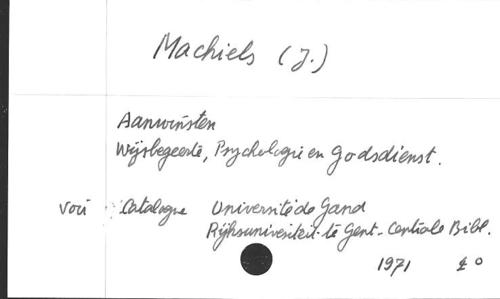 Machiels (J.)
Aanwinsten
Wijsbegeerte, Psychologie en Godsdienst.
Voir Catalogue Université de Gand
Rijksuniversiteit te Gent - Centrale Bibl.
1971